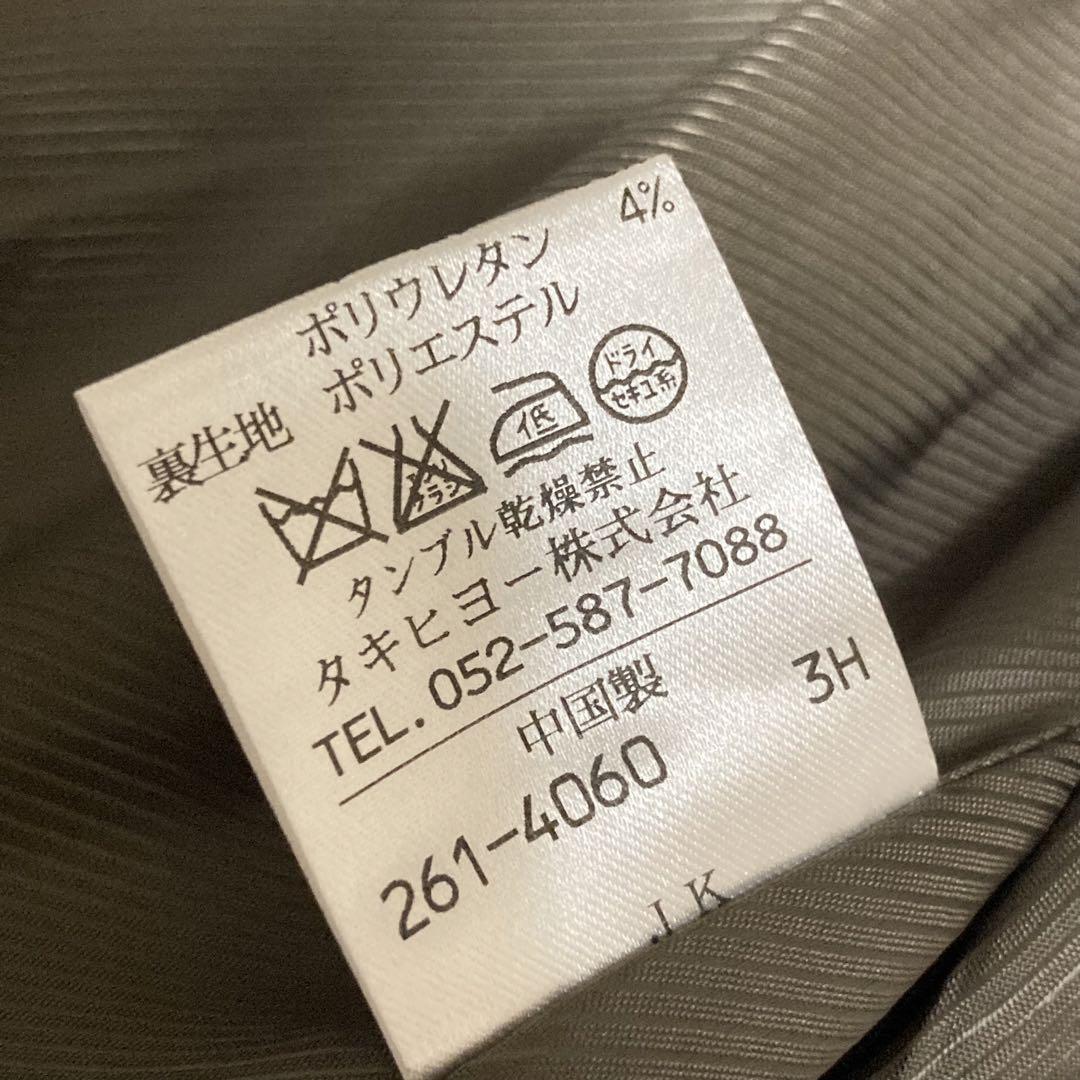 ポリウレタン 4%
裏生地 ポリエステル
低 ドライ
セキユ系
タンブル乾燥禁止
タキヒヨー株式会社
TEL. 052-587-7088
中国製 3H
261-4060
J K